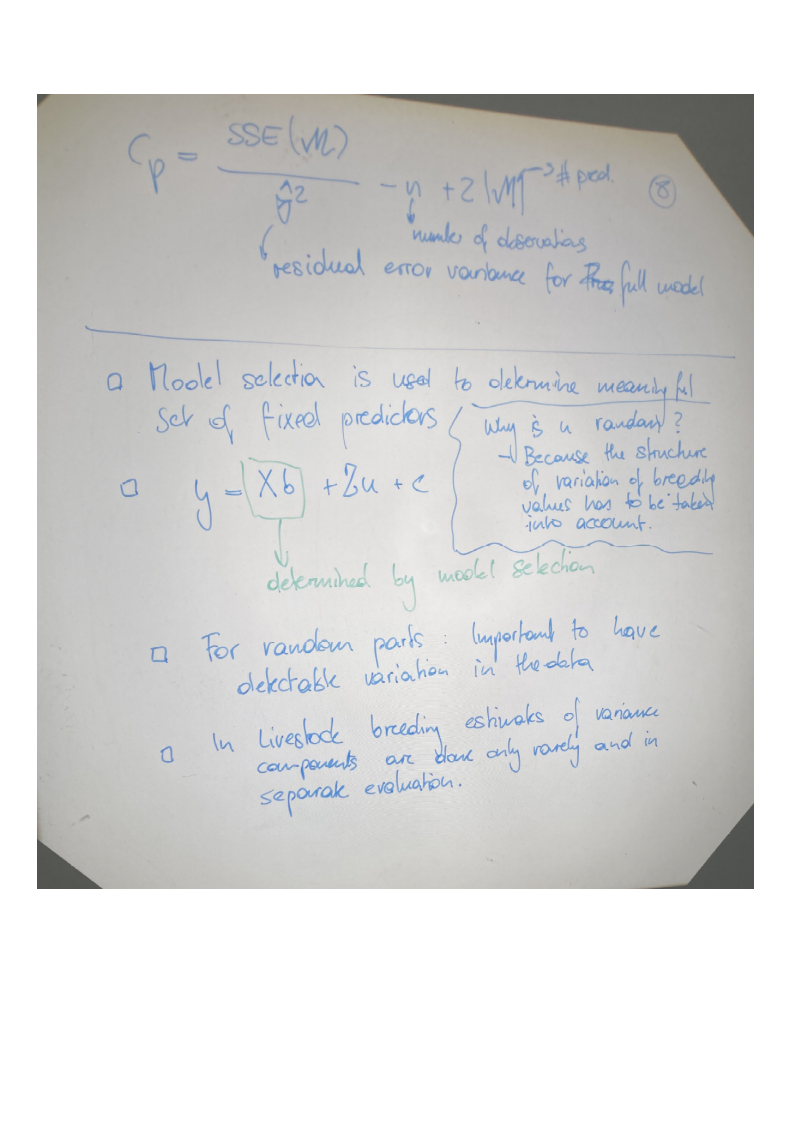 C_p = SSE(M) / σ̂² - n + 2|M| → # pred.
⑧
number of observations
residual error variance for full model
□ Model selection is used to determine meaningful
set of fixed predictors
Why is u random?
→ Because the structure
of variation of breeding
values has to be taken
into account.
□ y = Xb + Zu + e
determined by model selection
□ For random parts : Important to have
detectable variation in the data
□ In Livestock breeding estimates of variance
components are done only rarely and in
separate evaluation.